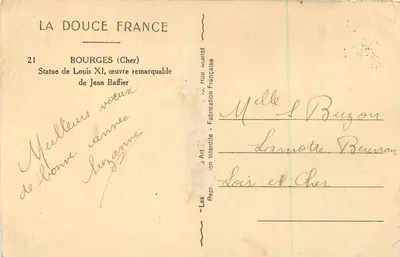 LA DOUCE FRANCE
21 BOURGES (Cher)
Statue de Louis XI, œuvre remarquable
de Jean Baffier
Meilleurs vœux
de bonne année
Suzanne
"Les
Reproduction Interdite - Fabrication Française
Melle S Buzon
Lamotte Beuvron
Loir et Cher